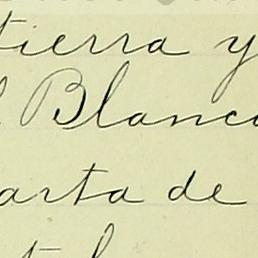 tierra y
Blanco
arta de